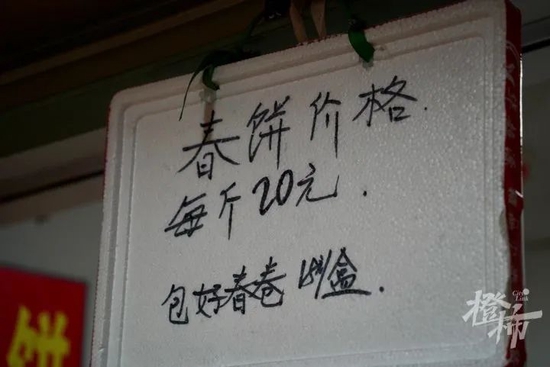 春饼价格.
每斤20元.
包好春卷 18/盒.
饼
橙柿